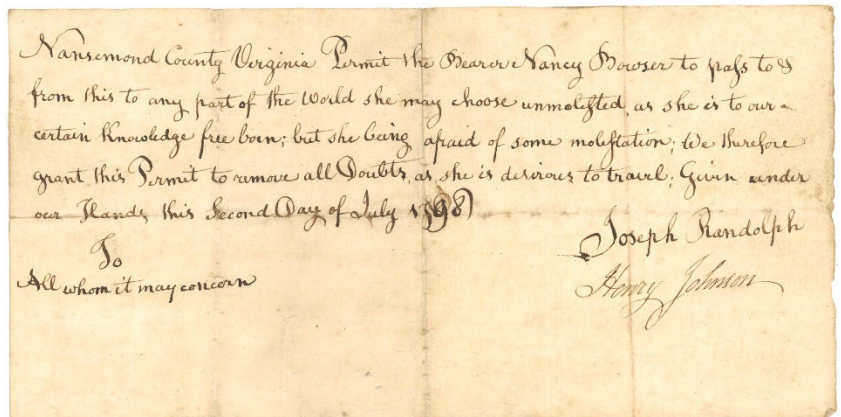 Nansemond County Virginia Permit the Bearer Nancy Bowser to pass to &
from this to any part of the World she may choose unmolested, as she is to our
certain Knowledge free born; but she being afraid of some molestation; We therefore
grant this Permit to remove all Doubts, as she is desirous to travel; Givin under
our Hands this Second Day of July 1798
Joseph Randolph
To
Henry Johnson
All whom it may concern